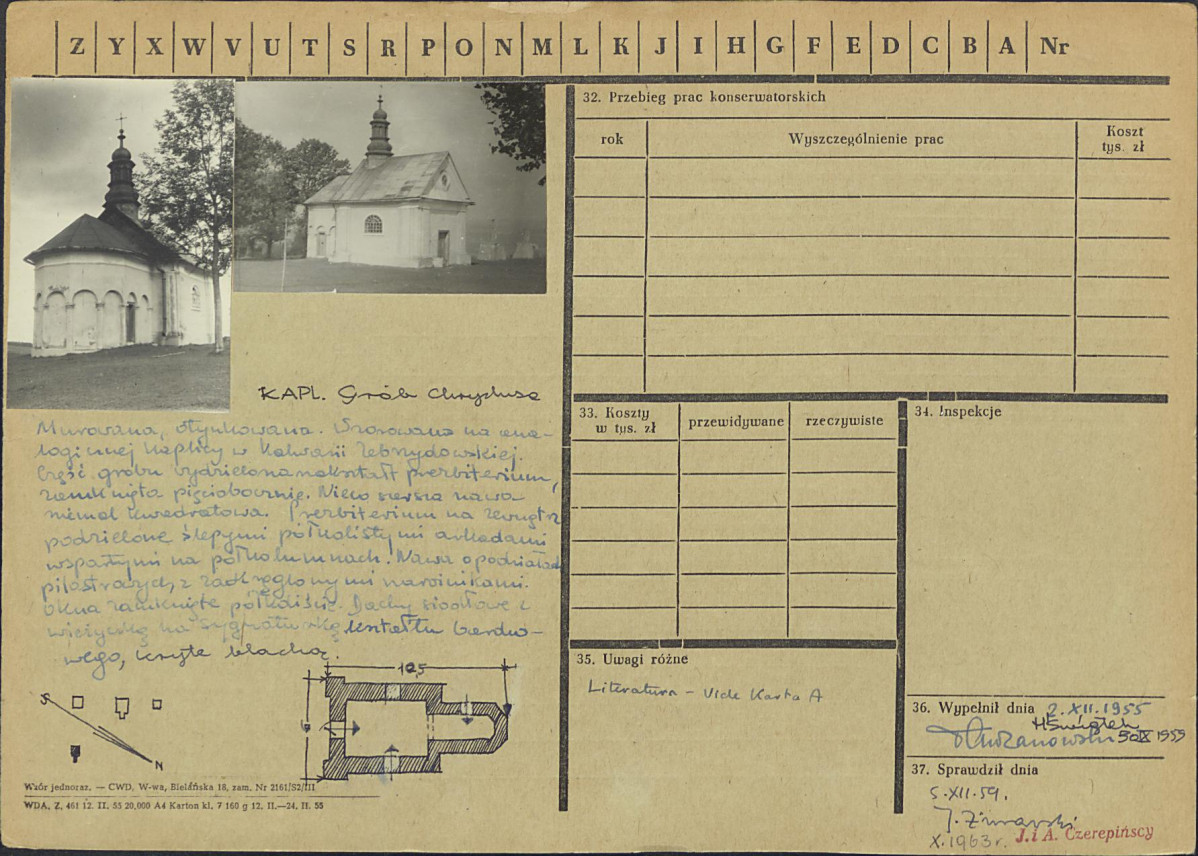 Z Y X W V U T S R P O N M L K J I H G F E D C B A Nr
KAPL. Grób Chrystusa
Murowana, otynkowana. Wzorowana na ana-
logicznej kaplicy w Kalwarii Zebrzydowskiej.
Część grobu wydzielona na kształt prezbiterium,
zamknięta pięciobocznie. Nieco szersza nawa
niemal kwadratowa. Prezbiterium na zewnątrz
podzielone ślepymi półkolistymi arkadami
wspartymi na półkolumnach. Nawa o podziałach
pilastrowych, z zaokrąglonymi narożnikami.
Okna zamknięte półkoliście. Dachy siodłowe z
wieżyczką na sygnaturkę kształtu baroko-
wego, kryte blachą.
10,5
S
N
Wzór jednoraz. — CWD, W-wa, Bielańska 18, zam. Nr 2161/S2/III
WDA. Z. 461 12. II. 55 20,000 A4 Karton kl. 7 160 g 12. II.—24. II. 55
32. Przebieg prac konserwatorskich
rok
Wyszczególnienie prac
Koszt
tys. zł
33. Koszty
w tys. zł
przewidywane
rzeczywiste
34. Inspekcje
35. Uwagi różne
Literatura – Vide Karta A
36. Wypełnił dnia 2. XII. 1955
H Świątek
1959
37. Sprawdził dnia
5. XII. 59.
X. 1963 r. J. i A. Czerepińscy